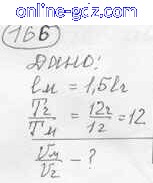 online-gdz.com
166
Дано:
lм = 1,5lг
Tг/Tм = 12г/1г = 12
Vм/Vг - ?